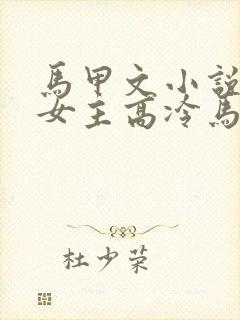 馬甲文小說
女主高冷馬
杜少荣